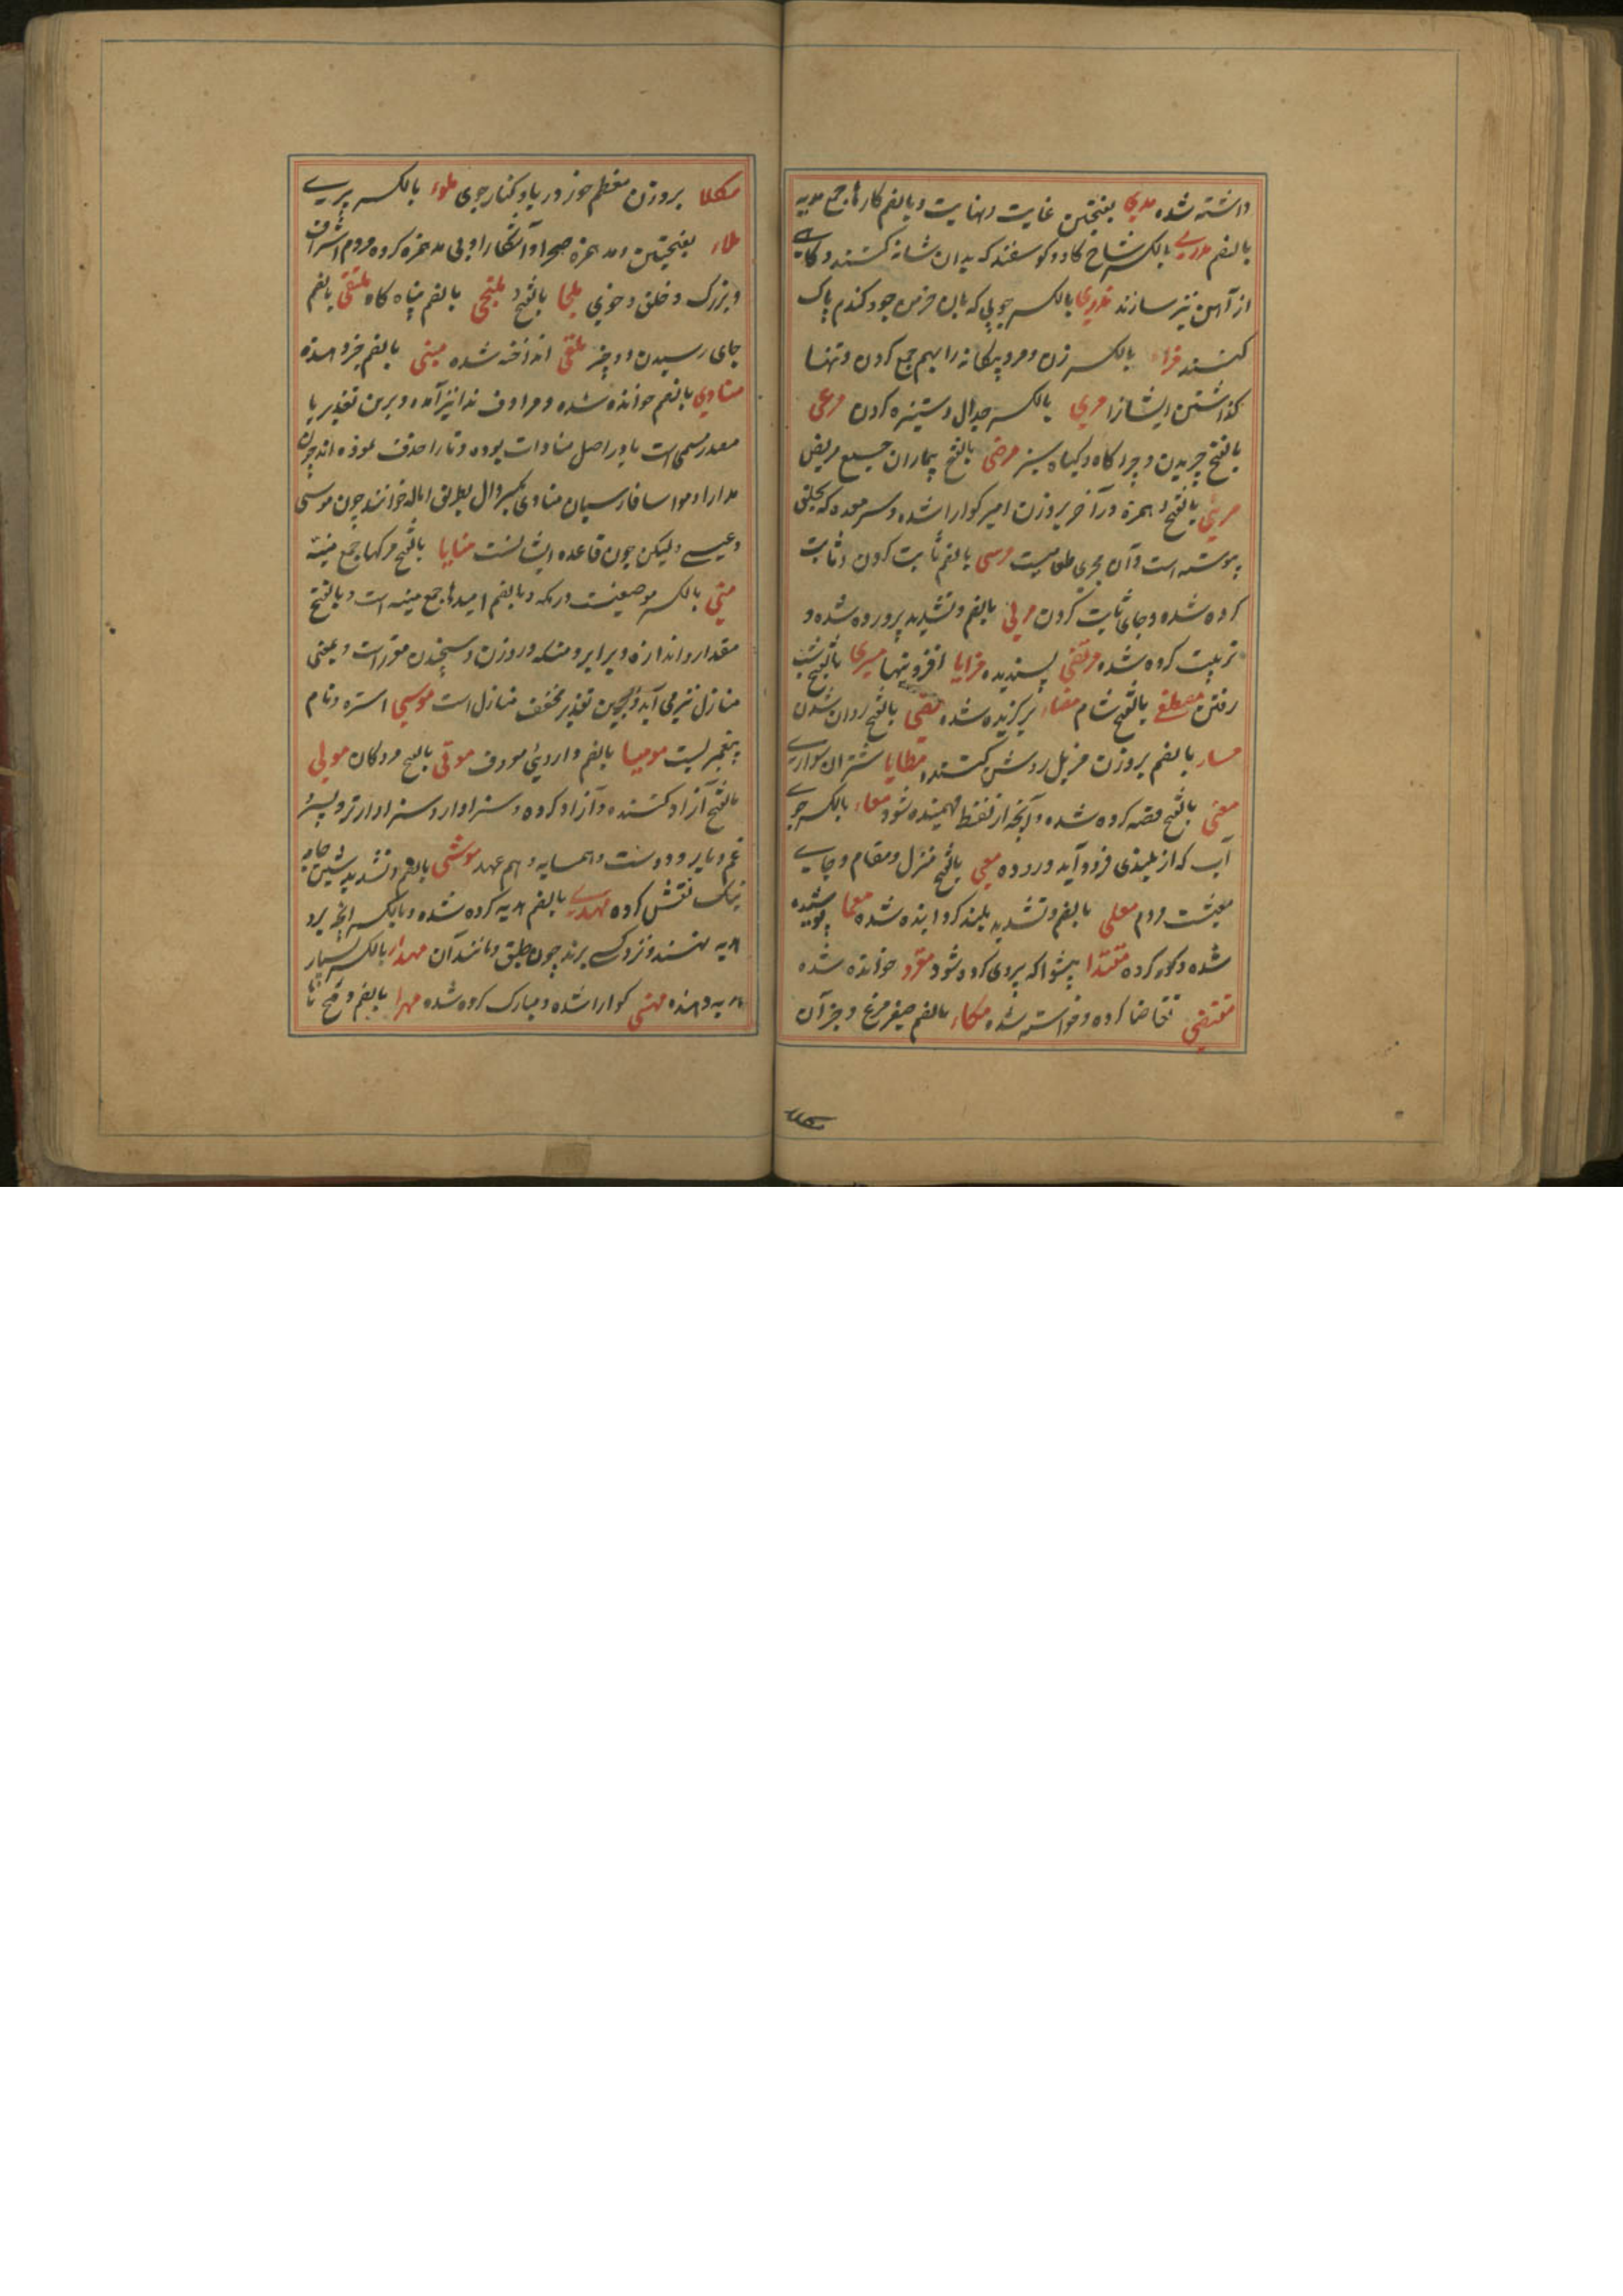 داشته شده مدی بفتحتین غایت و نهایت و بالضم کاردها جمع مدیه
بالضم مدری بالکسر شاخ گاو و گوسفند که بدان شانه کنند و گاهی
از آهن نیز سازند مذری بالکسر چوبی که بان خرمن جو و گندم پاک
کنند مراء بالکسر زن و مرد بیگانه را بهم جمع کردن و تنها
گذاشتن ایشانرا مری بالکسر جدال و ستیزه کردن مرعی
بالفتح چریدن و چراگاه و گیاه سبز مرضی بالفتح بیماران جمع مریض
مریئی بالفتح و همزه در آخر بروزن امیر گوارا شده و سر معده که بحلق
پیوسته است و آن مجری طعامست مرسی بالضم ثابت کردن و ثابت
کرده شده و جای ثابت کردن مربی بالضم و تشدید پرورده شده و
تربیت کرده شده مرتضی پسندیده مزایا افزونیها مسری بالفتح بشب
رفتن مصطفی بالفتح شام برگزیده شده بالفتح روان شدن
بالضم بروزن مزیل روشن کننده مطایا شتران سواری
معنی بالفتح قصد کرده شده و آنچه از لفظ فهمیده شود معاء بالکسر جوی
آب که از بلندی فرود آید و روده مغنی بالفتح منزل و مقام و جای
معیشت مردم معلی بالضم و تشدید بلند کردانیده شده معما پوشیده
شده و کور کرده مقتدا پیشوا که پیروی کرده شود مقرو خوانده شده
مقتضی تقاضا کرده و خواسته شده مکاء بالضم صفیر مرغ و جز آن
مکلا
مکلا بروزن معظم حوز دریا و کنار جوی ملوء بالکسر پری
ملاء بفتحتین و مد همزه صحرا و آشکارا و بی مد همزه گروه مردم اشراف
و بزرگ و خلق و خوی ملجا بالفتح و ملتجی بالضم پناه گاه ملتقی بالضم
جای رسیدن دو چیز ملقی انداخته شده منبی بالضم خبر دهنده
منادی بالضم خوانده شده و مرادف ندا نیز آمده و برین تقدیر یا
مصدر میمی است یا در اصل منادات بوده و تا را حذف نموده اند چون
مدارا و مواسا فارسیان منادی بکسر دال بطریق اماله خوانند چون موسی
و عیسی و لیکن چون قاعده ایشانست منایا بالفتح مرگها جمع منیة
منی بالکسر موضعیست در مکه و بالضم امیدها جمع منیه است و بالفتح
مقدار و اندازه و برابر و مسکه در وزن و سنجیدن مقرر است و بمعنی
منازل نیز می آید و بهمین تقدیر مخفف منازل است موسی استره و نام
پیغمبریست مومیا بالضم داروئی معروف موتی بالفتح مردگان مولی
بالفتح آزاد کننده و آزاد کرده و سزاوار و سزاوارتر و پسر
عم و یار و دوست و همسایه و هم عهد موشی بالضم و تشدید شین جامه
نیک نقش کرده مهدی بالضم هدیه کرده شده و بالکسر آنچه برو
هدیه نهند و نزد کسی برند چون طبق و مانند آن مهداء بالکسر بسیار
هدیه دهنده مهنی گوارا شده و مبارک کرده شده مهرا بالضم و فتح